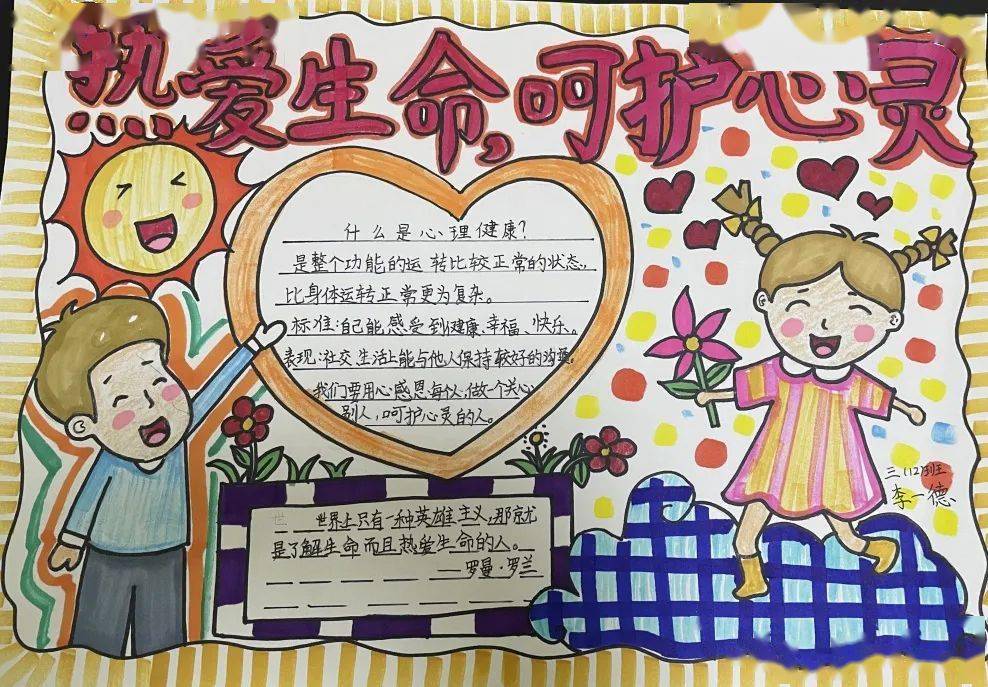 热爱生命,呵护心灵
什么是心理健康?
是整个功能的运转比较正常的状态,
比身体运转正常更为复杂。
标准:自己能感受到健康、幸福、快乐。
表现:社交生活上能与他人保持较好的沟通。
我们要用心感恩每份,做一个关心
别人,呵护心灵的人。
世界上只有一种英雄主义,那就
是了解生命而且热爱生命的人。
——罗曼·罗兰
三(12)班
李一德